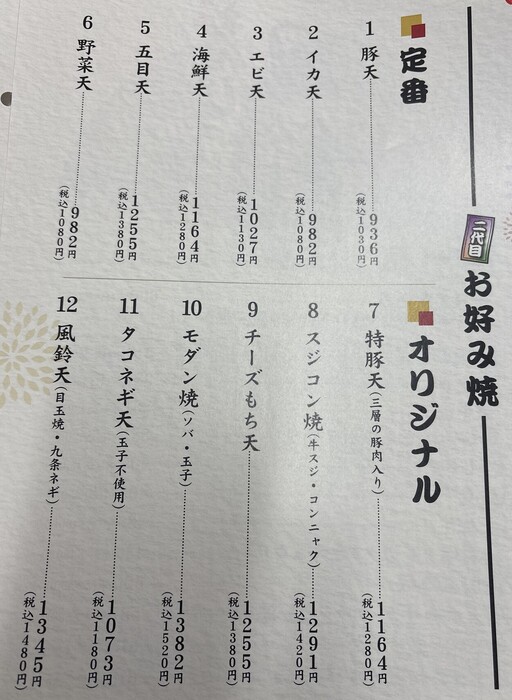 二代目
お好み焼
定番
1 豚天 936円
(税込1030円)
2 イカ天 982円
(税込1080円)
3 エビ天 1027円
(税込1130円)
4 海鮮天 1164円
(税込1280円)
5 五目天 1255円
(税込1380円)
6 野菜天 982円
(税込1080円)
オリジナル
7 特豚天(三層の豚肉入り) 1164円
(税込1280円)
8 スジコン焼(牛スジ・コンニャク) 1291円
(税込1420円)
9 チーズもち天 1255円
(税込1380円)
10 モダン焼(ソバ・玉子) 1382円
(税込1520円)
11 タコネギ天(玉子不使用) 1073円
(税込1180円)
12 風鈴天(目玉焼・九条ネギ) 1345円
(税込1480円)